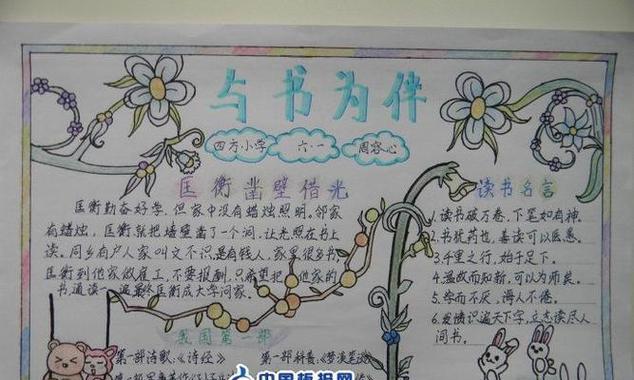 与书为伴
四方小学 六·一 周容心
匡衡凿壁借光
匡衡勤奋好学,但家中没有蜡烛照明,邻家
有蜡烛,匡衡就把墙壁凿了一个洞,让光照在书上
读。同乡有户人家叫文不识是有钱人,家里很多书
匡衡到他家做雇工,不要报酬,只希望把他家的
书,通读一遍最终匡衡成大学问家.
读书名言
1.读书破万卷,下笔如有神.
2.书犹药也,善读可以医愚.
3.千里之行,始于足下.
4.温故而知新,可以为师矣.
5.学而不厌,诲人不倦.
6.发愤识遍天下字,立志读尽人
间书.
我国第一部
第一部诗歌:《诗经》 第一部科普《梦溪笔谈》
中国板报网